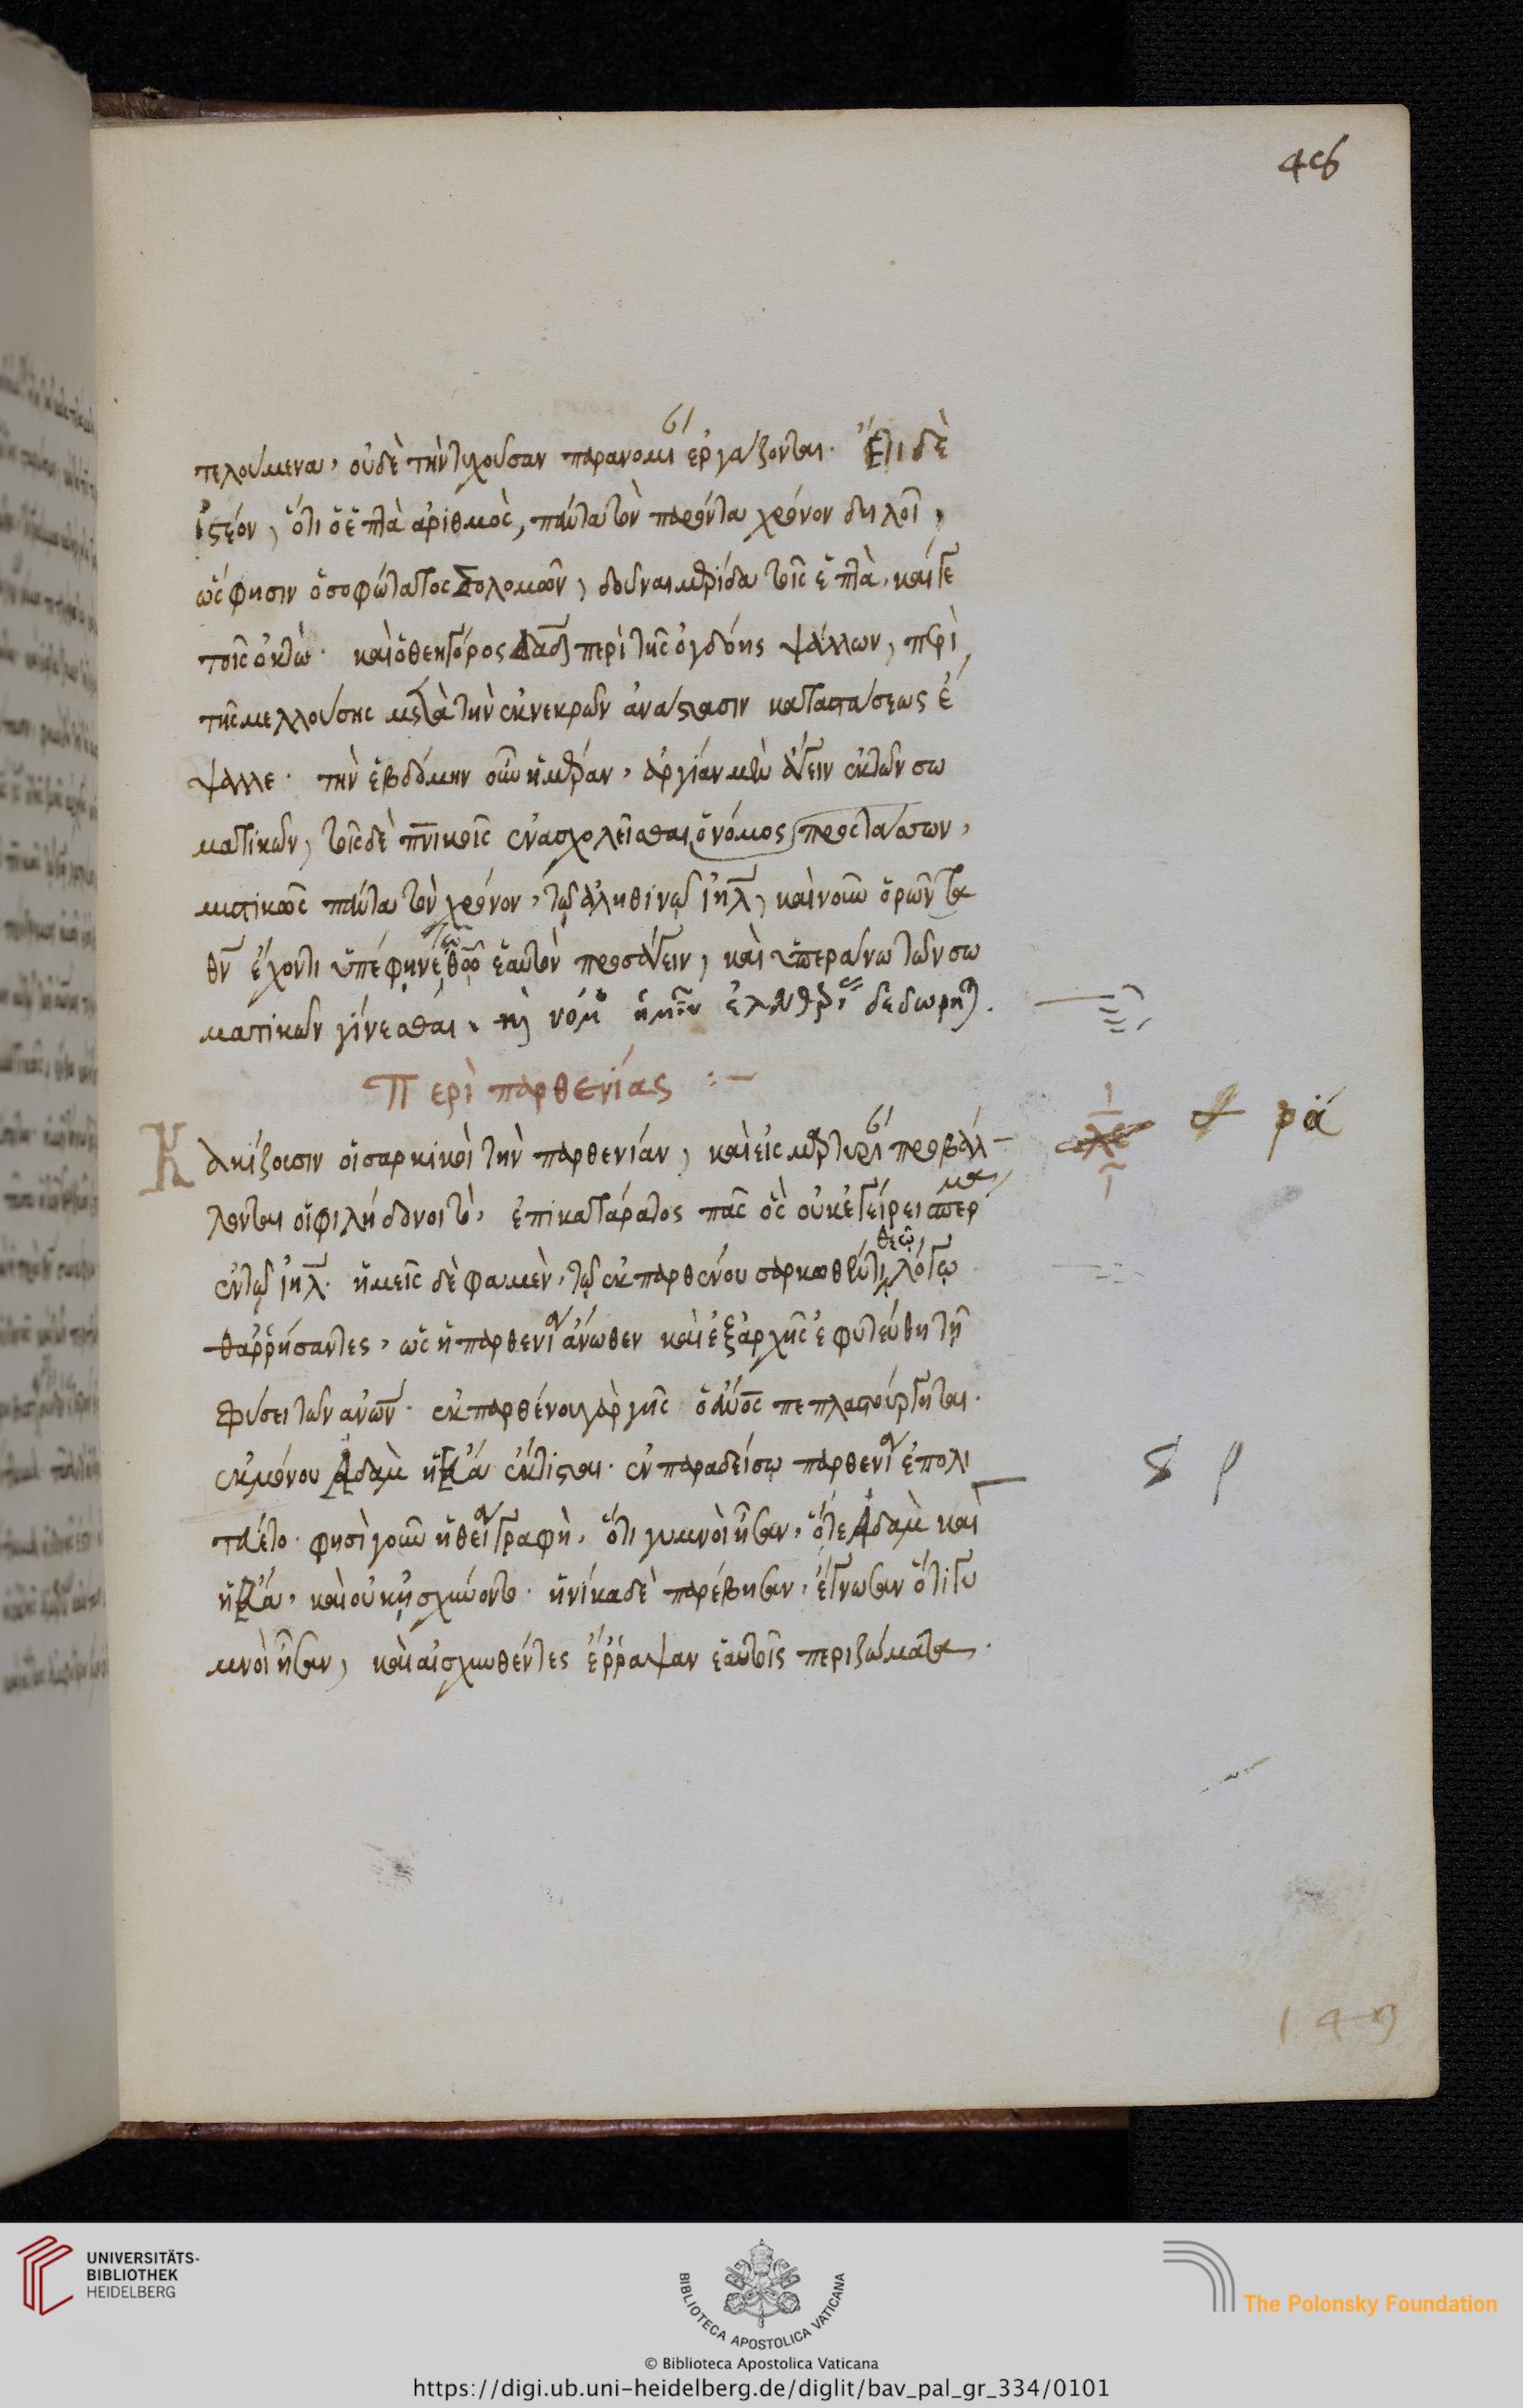 46
τελούμενα, οὐδὲ τὴν τυχοῦσαν παρανομί εἰ ἐργάζονται. Ἔτι δὲ
ἰστέον, ὅτι ὁ ἑπτὰ ἀριθμὸς, πάντα τὸν παρόντα χρόνον δηλοῖ,
ὥς φησιν ὁ σοφώτατος Σολομῶν, δοῦναι μερίδα τοῖς ἑπτὰ, καί γε
τοῖς ὀκτώ. καὶ ὁ θεηγόρος Δαδ περὶ τῆς ὀγδόης ψάλλων, περὶ
τῆς μελλούσης μετὰ τὴν ἐκ νεκρῶν ἀνάστασιν καταστάσεως ἔ
ψαλλε. τὴν ἑβδόμην οὖν ἡμέραν, ἀργίαν μὲν ἄγειν ἐκ τῶν σω
ματικῶν, τοῖς δὲ πνικοῖς ἐνασχολεῖσθαι ὁ νόμος προστάσσων,
μυστικῶς πάντα τὸν χρόνον, τῷ ἀληθινῷ ιηλ, καὶ νοῦν ὁρῶντα
θν ἔχοντι ὑπέφηνε τῷ θῶ ἑαυτὸν προσάγειν, καὶ ὑπεράνω τῶν σω
ματικῶν γίνεσθαι.
Περὶ παρθενίας :-
Κακίζουσιν οἱ σαρκικοὶ τὴν παρθενίαν, καὶ εἰς μαρτυρί προβάλ-
λονται οἱ φιλήδονοι τὸ, ἐπικατάρατος πᾶς ὃς οὐκ ἐγείρει σπέρμα
ἐν τῷ ιηλ. ἡμεῖς δὲ φαμὲν, τῷ ἐκ παρθένου σαρκωθέντι θεῷ λόγῳ
θαῤῥήσαντες, ὡς ἡ παρθενία ἄνωθεν καὶ ἐξαρχῆς ἐφυτεύθη τῇ
φύσει τῶν ανων. ἐκ παρθένου γὰρ γῆς ὁ ανος πεπλαστούργηται.
ἐκ μόνου Ἀδὰμ ἡ Εὔα ἔκτισται. ἐν παραδείσῳ παρθενία ἐπολι
τεύετο. φησὶ γοῦν ἡ θεία γραφὴ, ὅτι γυμνοὶ ἦσαν, ὅτε Ἀδὰμ καὶ
ἡ Εὔα, καὶ οὐκ ᾐσχύνοντο. ἡνίκα δὲ παρέβησαν, ἔγνωσαν ὅτι γυ
μνοὶ ἦσαν, καὶ αἰσχυνθέντες ἔῤῥαψαν ἑαυτοῖς περιζώματα.
ρα
149
UNIVERSITÄTS-
BIBLIOTHEK
HEIDELBERG
BIBLIOTECA APOSTOLICA VATICANA
The Polonsky Foundation
© Biblioteca Apostolica Vaticana
https://digi.ub.uni-heidelberg.de/diglit/bav_pal_gr_334/0101